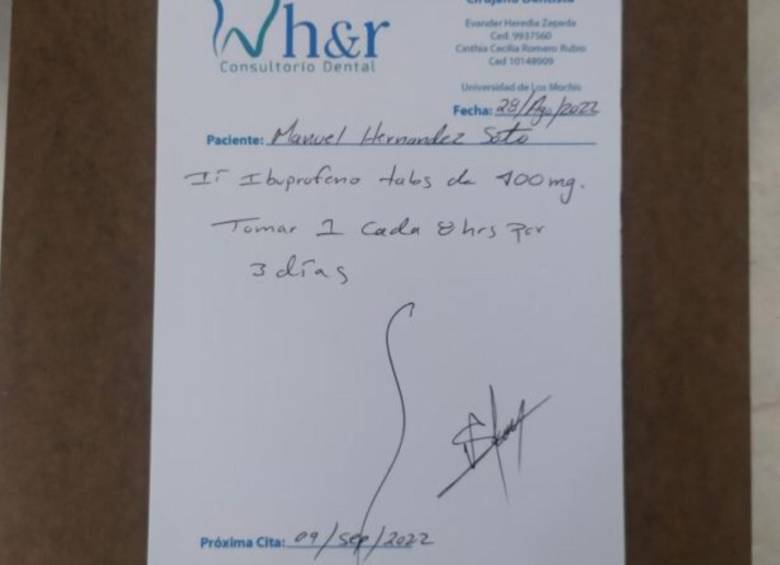 h&r
Consultorio Dental
Cirujano Dentista
Evander Heredia Zepeda
Ced. 9937560
Cinthia Cecilia Romero Rubio
Ced 10148009
Universidad de Los Mochis
Fecha: 28/Ago/2022
Paciente: Manuel Hernandez Soto
I- Ibuprofeno tabs de 400mg.
Tomar 1 cada 8hrs por
3 días
Próxima Cita: 09/sep/2022